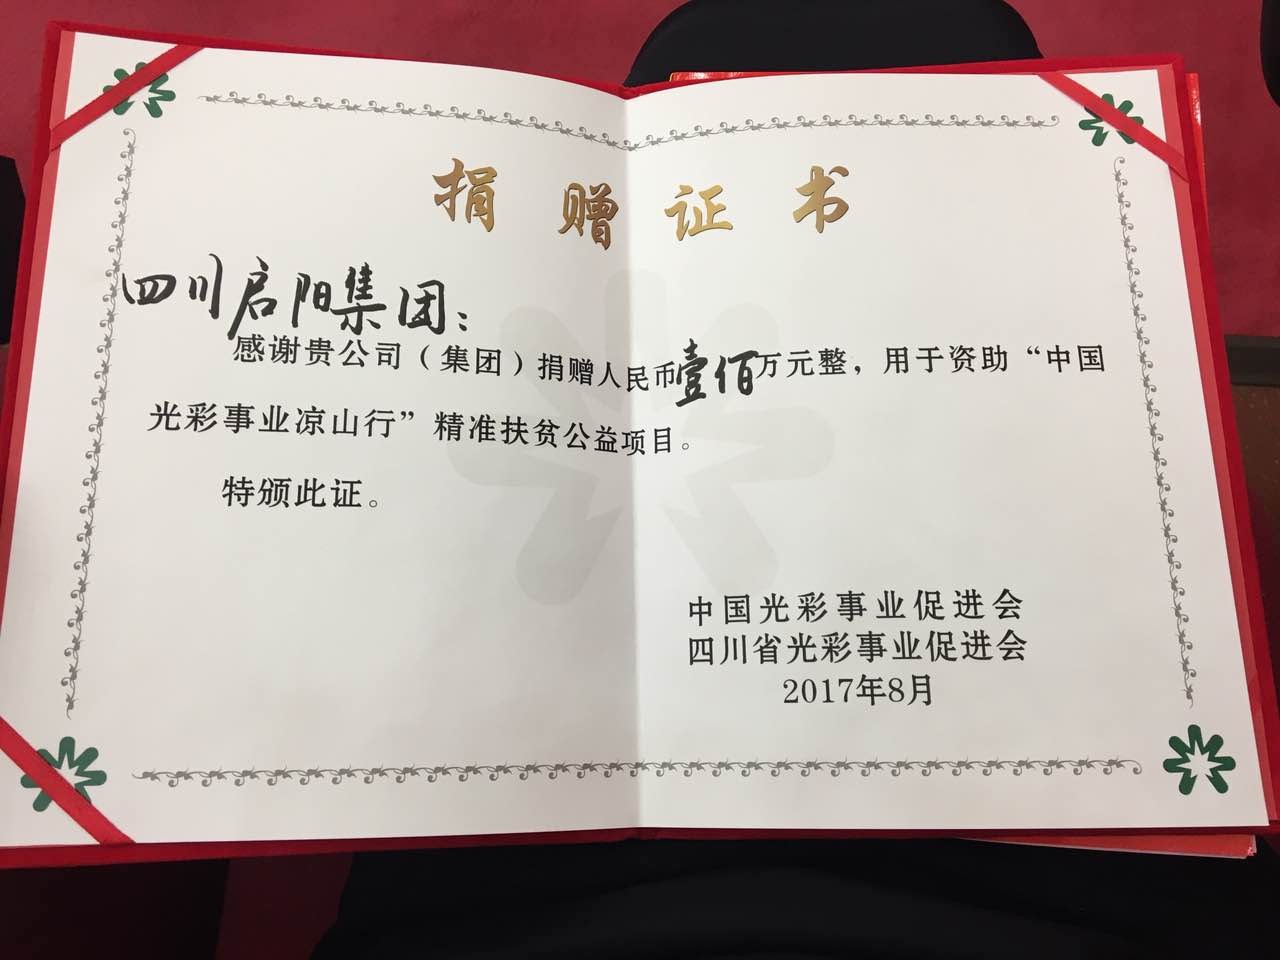 捐赠证书
四川启阳集团：
感谢贵公司（集团）捐赠人民币壹佰万元整，用于资助“中国
光彩事业凉山行”精准扶贫公益项目。
特颁此证。
中国光彩事业促进会
四川省光彩事业促进会
2017年8月